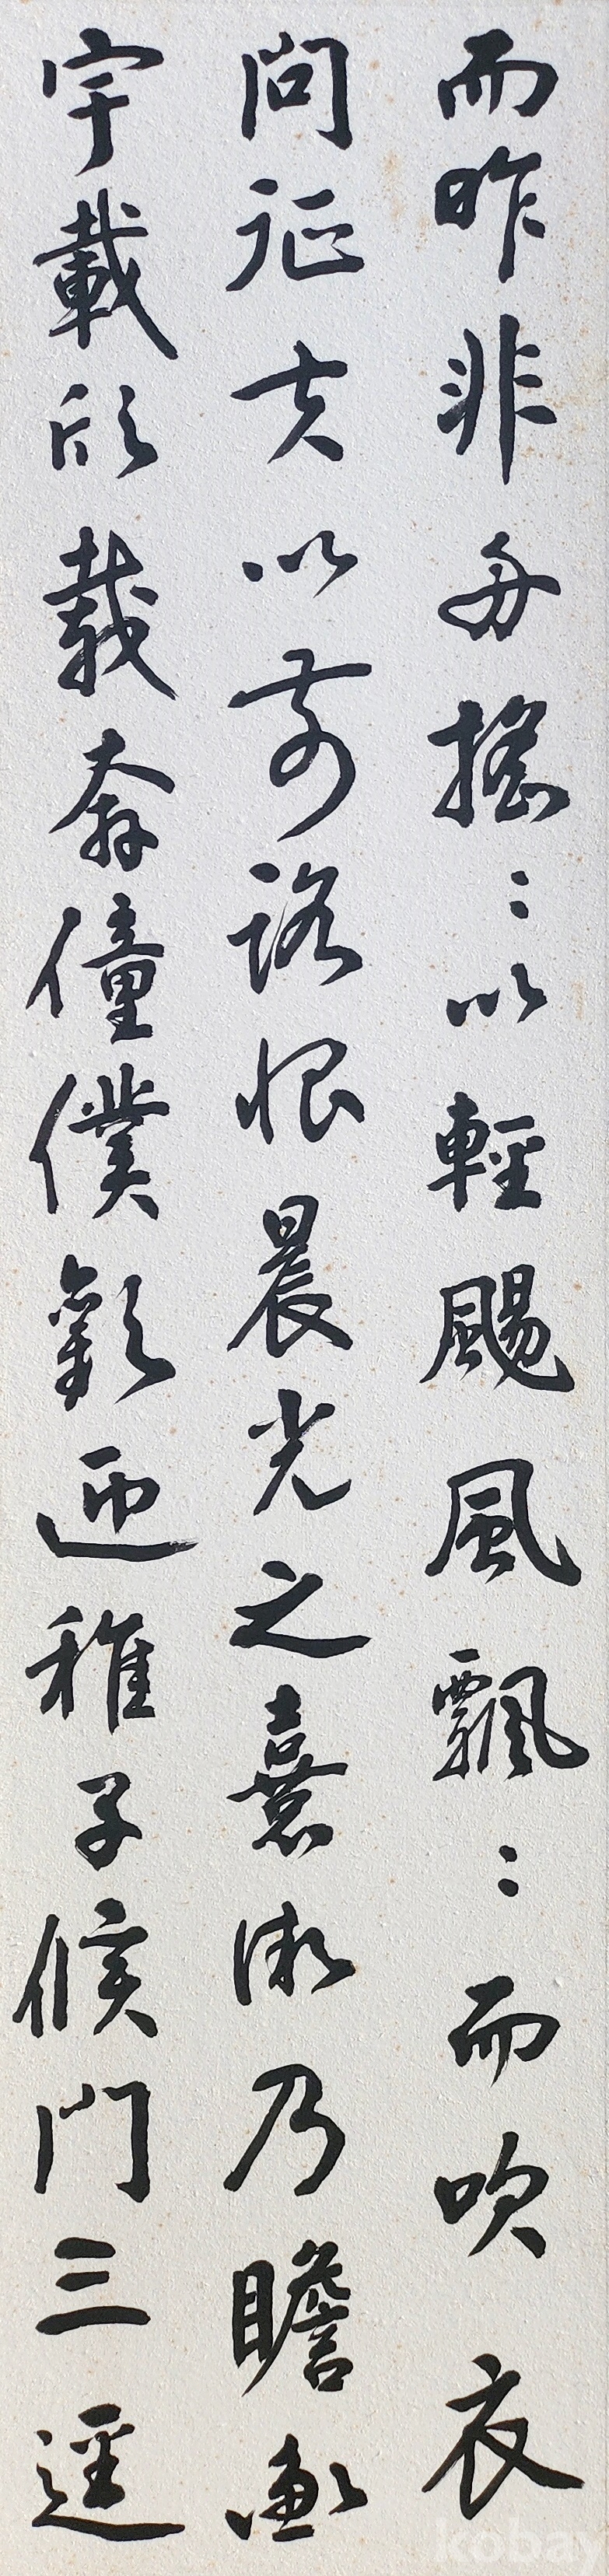 而昨非舟搖〻以輕颺風飄〻而吹衣
問征夫以前路恨晨光之熹微乃瞻衡
宇載欣載奔僮僕歡迎稚子候門三逕
kobay